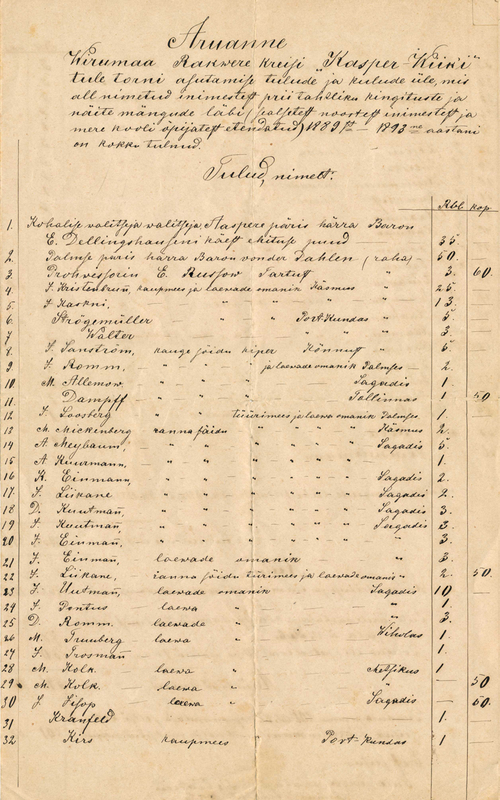 Aruanne
Wirumaa Rakwere kreisi "Kasper-Wiiki"
tule torni asutamise tulude ja kulude üle, mis
all nimetud inimestest priitahtliku kingituste ja
näite mängude läbi (sealsetest noortest inimestest ja
mere kooli õpijatest etendatud) 1889st – 1893me aastani
on kokku tulnud.
Tulud, nimelt:
Rbl. kop.
1. Kohalise valitseja Kaspere päris härra Baron
E. Dellingshauseni käest ehituse puud 35 -
2. Palmse päris härra Baron von der Pahlen (raha) 50. -
3. Prohwessorin E. Russow Tartust " 3. 60.
4 J. Kristenbrun, kaupmees ja laewade omanik Käsmus " 25 -
5. J. Kaskni, " " " " 13. -
6. Strögemüller Port Kundas " 5 -
7 Walter " " 3. -
8. J. Sanström, kauge sõidu kiper Könnust " 5 -
9 J. Romm, " " " ja laewade omanik Palmses - 2. -
10 M. Allemow, " " " Sagadis 1 -
11 Dampff " " " Tallinnas 1 50
12 J. Loosberg " " " tüürimees ja laewa omanik Palmses 1. -
13 M. Mickenberg ranna sõidu " " " Käsmus 2. -
14 A. Meybaum, " " " " " Sagadis 5. -
15 A. Kuurmann, " " " " " " 1. -
16 K. Einmann, " " " " " Sagadis 2 -
17. J. Liikane " " " " " Sagadis 2. -
18 D. Kuutmañ, " " " " " Sagadis 3. -
19 J. Kuutmañ, " " " " " Sagadis 3. -
20 J. Einmañ, " " " " " " 3. -
21 J. Einmañ, laewade omanik " 3. -
22 J. Liikane, - ranna sõidu tüürimees ja laewade omanik " 2. 50.
23 J. Uutmañ, laewade omanik Sagadis 10 -
24 J. Pontus laewa " " 1 -
25 D. Romm. laewade " " 3. -
26 M. Truuberg laewa " Wihulas 1 -
27 J. Trosmañ " " 1. -
28 M. Kolk. laewa " Metsikus 1 -
29 M. Kolk. laewa " " - 50
30 J. Sisop laewa " Sagadis - 50.
31 Kranfeld 1. -
32 Kirs kaupmees Port-Kundas 1 -